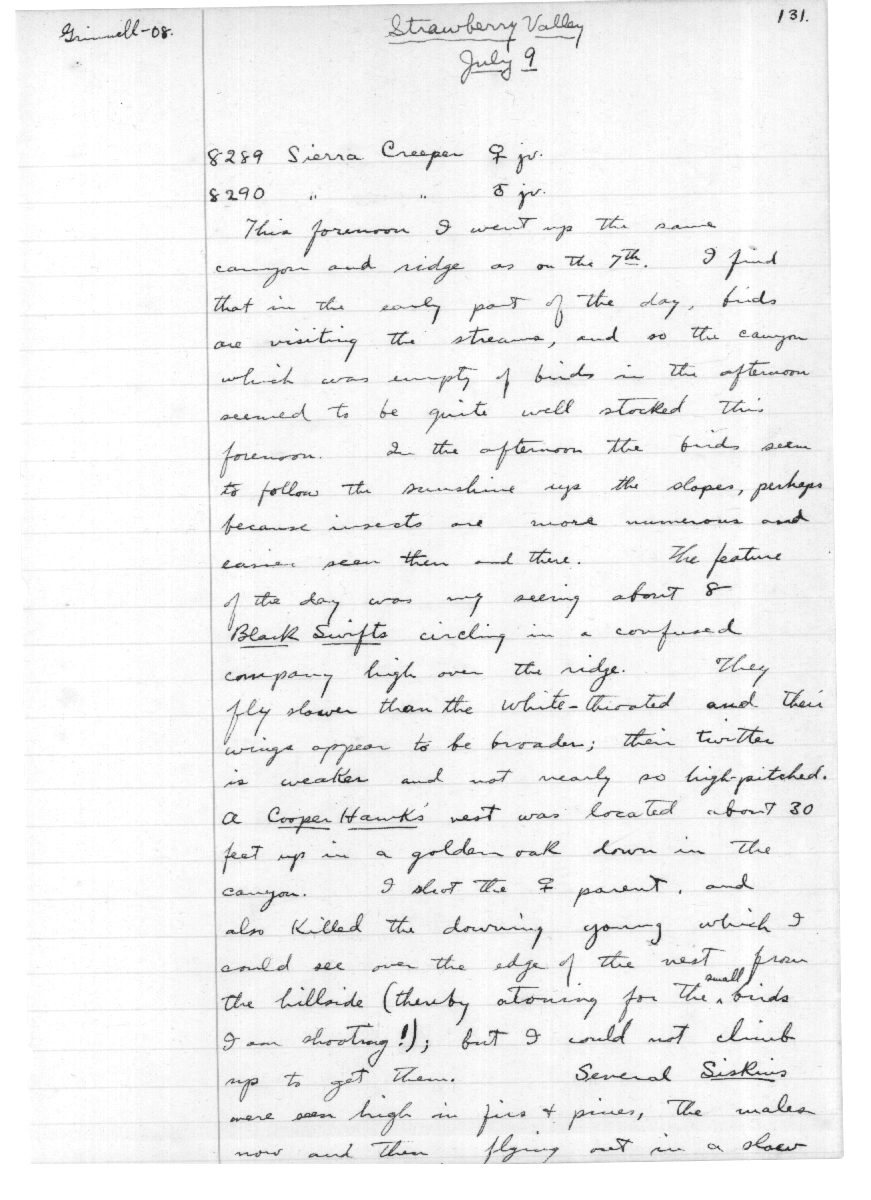 Grinnell-08.
Strawberry Valley
131.
July 9
8289 Sierra Creeper ♀ jv.
8290 " " ♂ jv.
This forenoon I went up the same
canyon and ridge as on the 7th. I find
that in the early part of the day, birds
are visiting the streams, and so the canyon
which was empty of birds in the afternoon
seemed to be quite well stocked this
forenoon. In the afternoon the birds seem
to follow the sunshine up the slopes, perhaps
because insects are more numerous and
easier seen then and there. The feature
of the day was my seeing about 8
Black Swifts circling in a confused
company high over the ridge. They
fly slower than the White-throated and their
wings appear to be broader; their twitter
is weaker and not nearly so high-pitched.
A Cooper Hawk's nest was located about 30
feet up in a golden oak down in the
canyon. I shot the ♀ parent, and
also killed the downy young which I
could see over the edge of the nest from
the hillside (thereby atoning for the small birds
I am shooting!); but I could not climb
up to get them. Several Siskins
were seen high in firs & pines, the males
now and then flying out in a slow